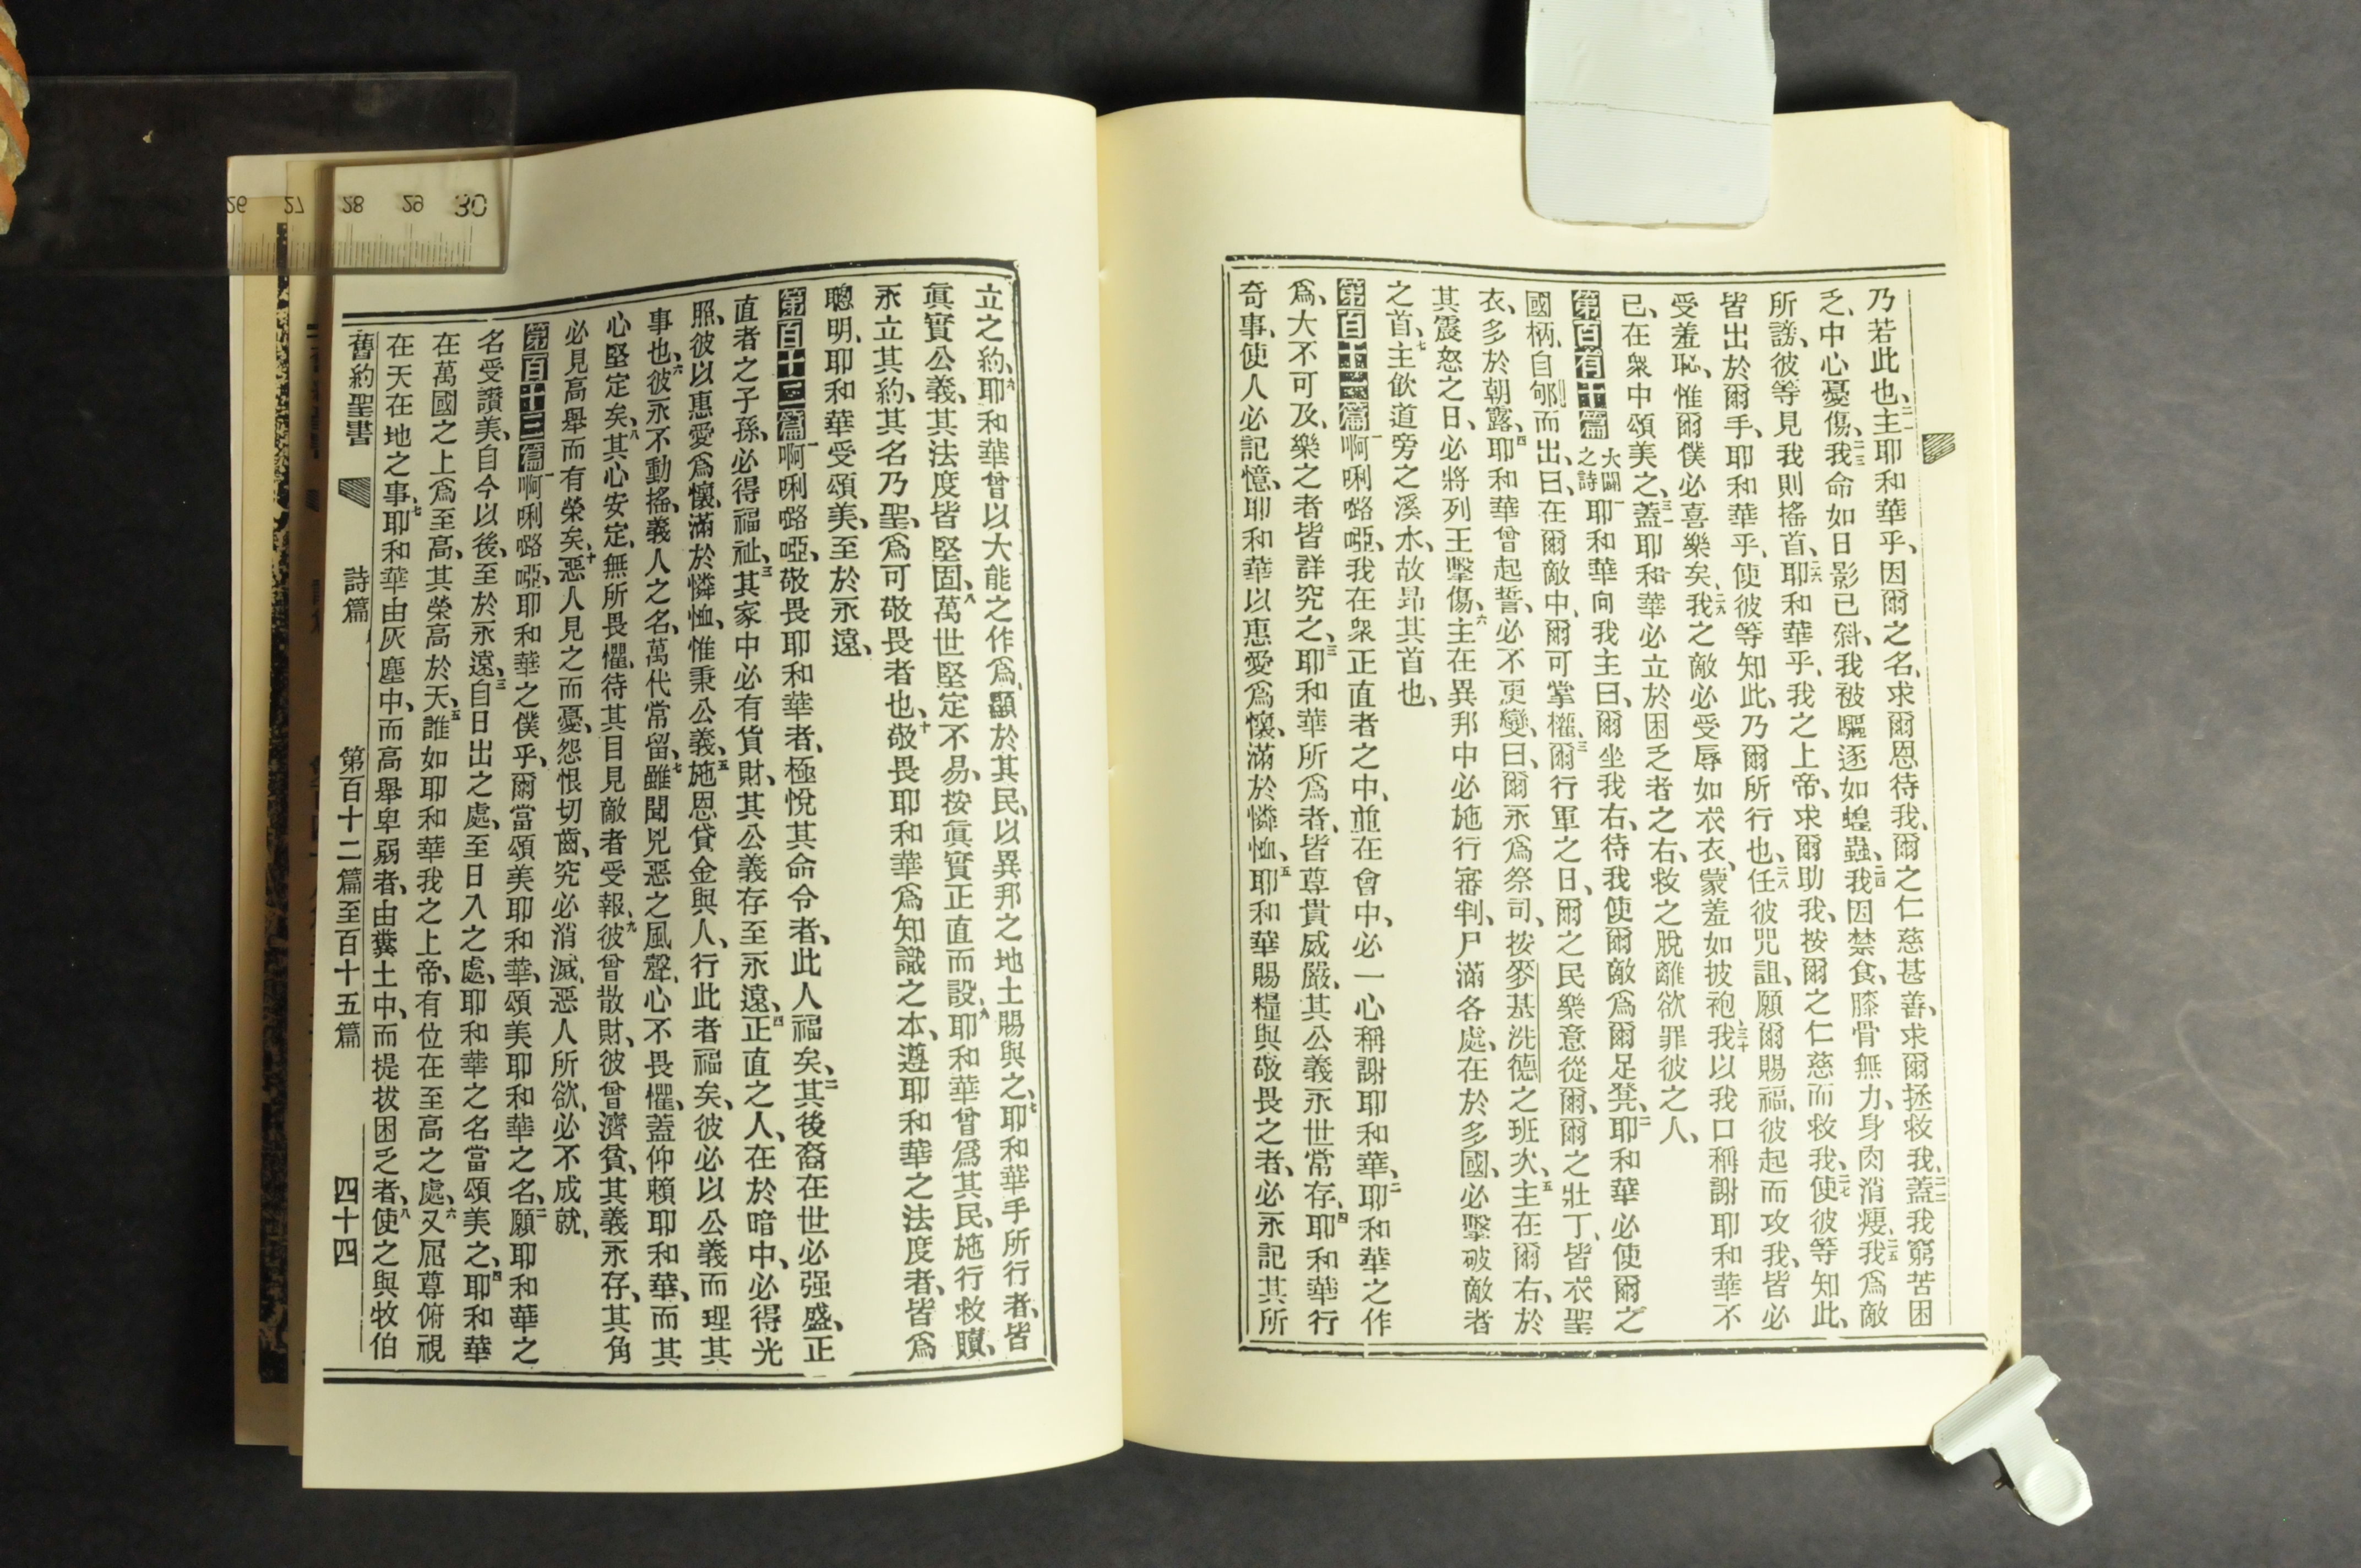 乃若此也、二一主耶和華乎、因爾之名、求爾恩待我、爾之仁慈甚善、求爾拯救我、二二蓋我窮苦困
乏、中心憂傷、二三我命如日影已斜、我被驅逐如蝗蟲、二四我因禁食、膝骨無力、身肉消瘦、二五我爲敵
所謗、彼等見我則搖首、二六耶和華乎、我之上帝、求爾助我、按爾之仁慈而救我、二七使彼等知此、
皆出於爾手、耶和華乎、使彼等知此、乃爾所行也、二八任彼咒詛、願爾賜福、彼起而攻我、皆必
受羞恥、惟爾僕必喜樂矣、二九我之敵必受辱如衣衣、蒙羞如披袍、三十我以我口稱謝耶和華不
已、在衆中頌美之、三一蓋耶和華必立於困乏者之右、救之脫離欲罪彼之人、
第百有十篇 大闢之詩 一耶和華向我主曰、爾坐我右、待我使爾敵爲爾足凳、二耶和華必使爾之
國柄、自郇而出、曰、在爾敵中、爾可掌權、三爾行軍之日、爾之民樂意從爾、爾之壯丁、皆衣聖
衣、多於朝露、四耶和華曾起誓、必不更變、曰、爾永爲祭司、按麥基洗德之班次、五主在爾右、於
其震怒之日、必將列王擊傷、六主在異邦中必施行審判、尸滿各處、在於多國、必擊破敵者
之首、七主飮道旁之溪水、故昻其首也、
第百十一篇 一啊唎嚕啞、我在衆正直者之中、並在會中、必一心稱謝耶和華、二耶和華之作
爲、大不可及、樂之者皆詳究之、三耶和華所爲者、皆尊貴威嚴、其公義永世常存、四耶和華行
奇事、使人必記憶、耶和華以惠愛爲懷、滿於憐恤、五耶和華賜糧與敬畏之者、必永記其所
立之約、六耶和華曾以大能之作爲、顯於其民、以異邦之地土賜與之、七耶和華手所行者、皆
眞實公義、其法度皆堅固、八萬世堅定不易、按眞實正直而設、九耶和華曾爲其民、施行救贖、
永立其約、其名乃聖、爲可敬畏者也、十敬畏耶和華爲知識之本、遵耶和華之法度者、皆爲
聰明、耶和華受頌美、至於永遠、
第百十二篇 一啊唎嚕啞、敬畏耶和華者、極悅其命令者、此人福矣、二其後裔在世必强盛、正
直者之子孫、必得福祉、三其家中必有貨財、其公義存至永遠、四正直之人、在於暗中、必得光
照、彼以惠愛爲懷、滿於憐恤、惟秉公義、五施恩貸金與人、行此者福矣、彼必以公義而理其
事也、六彼永不動搖、義人之名、萬代常留、七雖聞兇惡之風聲、心不畏懼、蓋仰賴耶和華、而其
心堅定矣、八其心安定、無所畏懼、待其目見敵者受報、九彼曾散財、彼曾濟貧、其義永存、其角
必見高舉而有榮矣、十惡人見之而憂、怨恨切齒、究必消滅、惡人所欲、必不成就、
第百十三篇 一啊唎嚕啞、耶和華之僕乎、爾當頌美耶和華、頌美耶和華之名、二願耶和華之
名受讚美、自今以後、至於永遠、三自日出之處、至日入之處、耶和華之名當頌美之、四耶和華
在萬國之上爲至高、其榮高於天、五誰如耶和華我之上帝、有位在至高之處、六又屈尊俯視
在天在地之事、七耶和華由灰塵中、而高舉卑弱者、由糞土中、而提拔困乏者、八使之與牧伯
舊約聖書 詩篇 第百十二篇至百十五篇 四十四
26 27 28 29 30